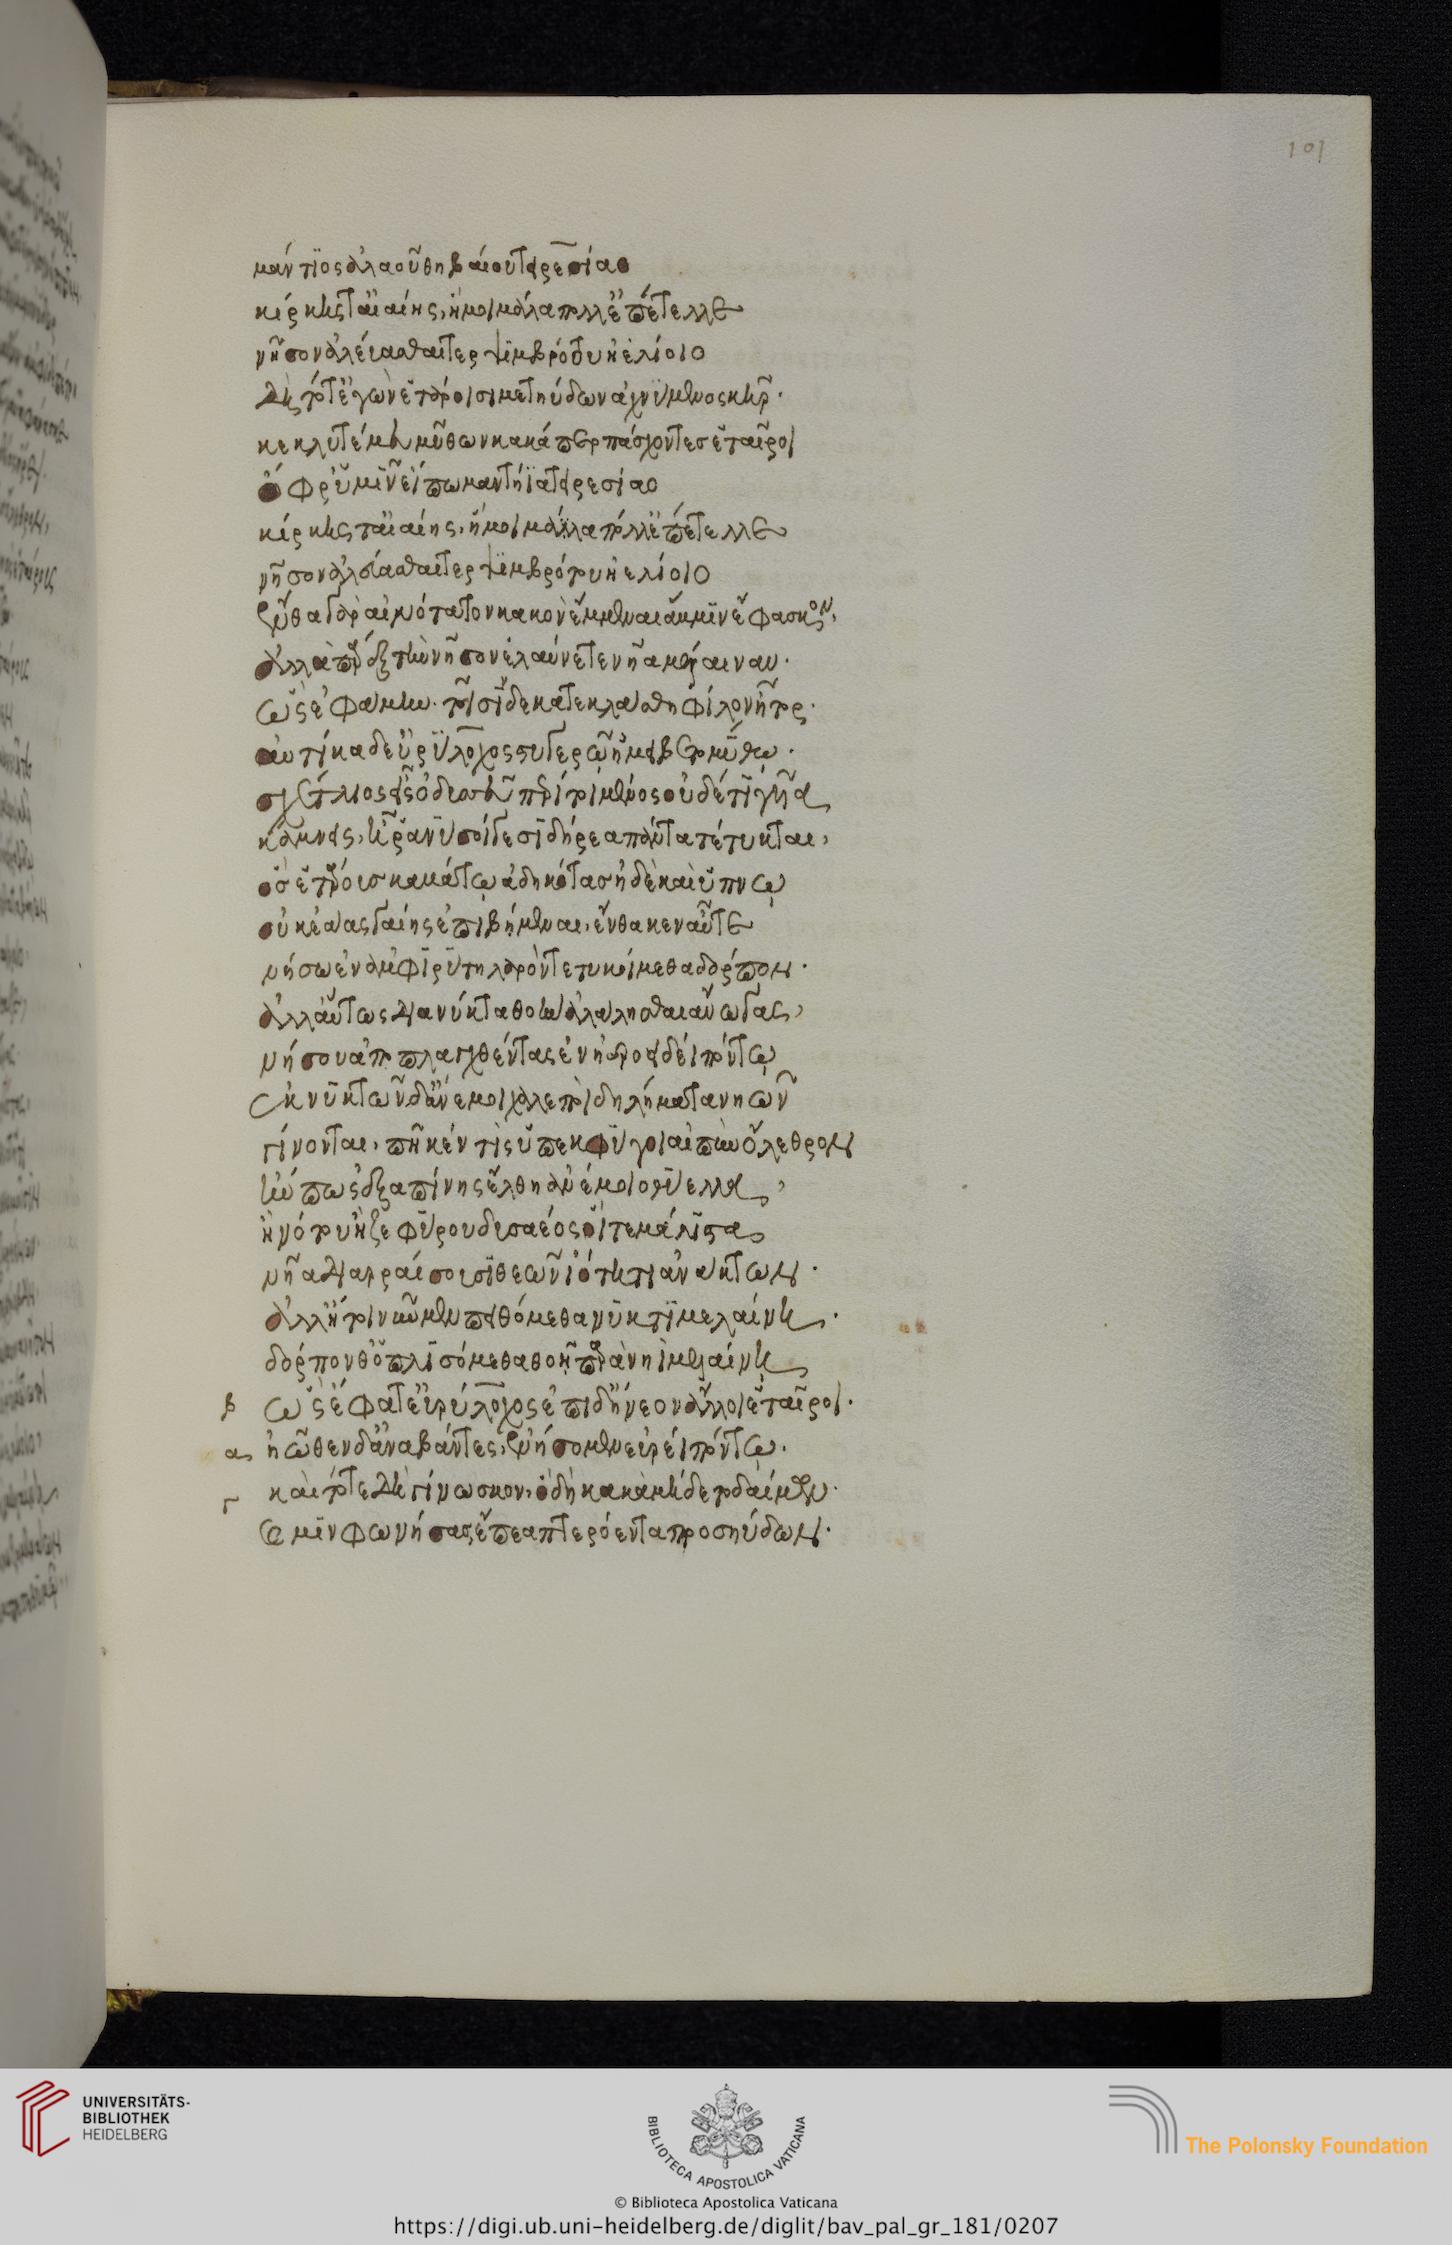 101
μάντιος ἀλαοῦ θηβαίου τειρεσίαο
κίρκης τ' αἰαίης, ἥ μοι μάλα πόλλ' ἐπέτελλε
νῆσον ἀλεύασθαι τερψιμβρότου ἠελίοιο
δὴ τότ' ἐγὼν ἑτάροισι μετηύδων ἀχνύμενος κῆρ.
κέκλυτέ μευ μύθων κακά περ πάσχοντες ἑταῖροι
ὄφρ' ὑμῖν εἴπω μαντήϊα τειρεσίαο
κίρκης τ' αἰαίης, ἥ μοι μάλα πόλλ' ἐπέτελλε
νῆσον ἀλεύασθαι τερψιμβρότου ἠελίοιο
ἔνθα γὰρ αἰνότατον κακὸν ἔμμεναι ἄμμιν ἔφασκον,
ἀλλὰ παρὲξ τὴν νῆσον ἐλαύνετε νῆα μέλαιναν.
ὣς ἐφάμην. τοῖσιν δὲ κατεκλάσθη φίλον ἦτορ.
αὐτίκα δ' εὐρύλοχος στυγερῷ ἠμείβετο μύθῳ.
σχέτλιος εἶς ὀδυσεῦ περί τοι μένος οὐδέ τι γυῖα
κάμνεις, ἦ ῥά νυ σοίγε σιδήρεα πάντα τέτυκται,
ὅς ῥ' ἑτάρους καμάτῳ ἀδηκότας ἠδὲ καὶ ὕπνῳ
οὐκ ἐάας γαίης ἐπιβήμεναι, ἔνθα κεν αὖτε
νήσῳ ἐν ἀμφιρύτῃ λαρὸν τετυκοίμεθα δόρπον.
ἀλλ' αὔτως διὰ νύκτα θοὴν ἀλάλησθαι ἄνωγας,
νήσου ἀποπλαγχθέντας ἐν ἠεροειδέϊ πόντῳ
ἐκ νυκτῶν δ' ἄνεμοι χαλεποὶ δηλήματα νηῶν
γίνονται, πῆ κέν τις ὑπεκφύγοι αἰπὺν ὄλεθρον
ἤν πως ἐξαπίνης ἔλθῃ ἀνέμοιο θύελλα,
ἢ νότου ἢ ζεφύρου δυσαέος οἵ τε μάλιστα
νῆα διαρραίουσι θεῶν ἰότητι ἀνάκτων.
ἀλλ' ἤτοι νῦν μὲν πειθώμεθα νυκτὶ μελαίνῃ.
δόρπον θ' ὁπλισόμεθα θοῇ παρὰ νηῒ μελαίνῃ
β ὣς ἔφατ' εὐρύλοχος ἐπὶ δ' ᾔνεον ἄλλοι ἑταῖροι.
α ἠῶθεν δ' ἀναβάντες, ἐνήσομεν εὐρέϊ πόντῳ.
γ καὶ τότε δὴ γίνωσκον, ὃ δὴ κακὰ μήδετο δαίμων.
καί μιν φωνήσας ἔπεα πτερόεντα προσηύδων.
UNIVERSITÄTS-
BIBLIOTHEK
HEIDELBERG
BIBLIOTECA APOSTOLICA VATICANA
The Polonsky Foundation
© Biblioteca Apostolica Vaticana
https://digi.ub.uni-heidelberg.de/diglit/bav_pal_gr_181/0207